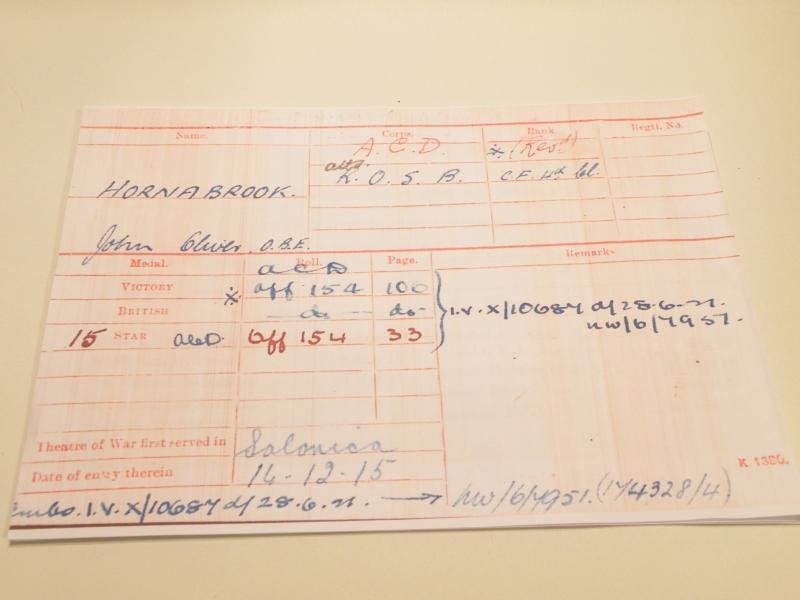 Name. Corps. Rank Regtl. No.
A. C. D. ※ (Revd)
attd.
HORNABROOK. K. O. S. B. C.F. 4th Cl.
John Oliver. O.B.E.
Medal. Roll. Page. Remarks
A C D
VICTORY ※ Off 154 100
BRITISH do do I.V. X/10687 d/28.6.21.
NW/6/7951.
15 STAR ACD. Off 154 33
Theatre of War first served in Salonica
Date of entry therein 14-12-15
K 1380.
I.V. X/10687 d/28.6.21. → NW/6/7951. (174328/4)